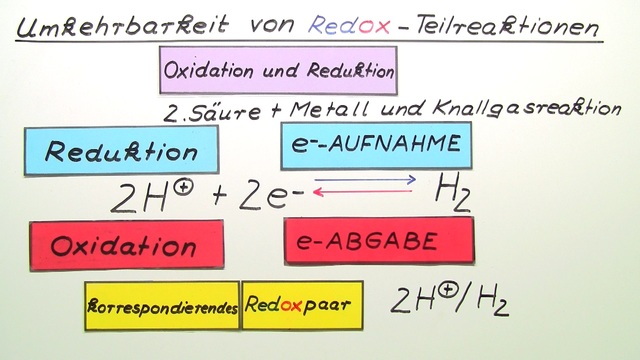 Umkehrbarkeit von Redox-Teilreaktionen
Oxidation und Reduktion
2. Säure + Metall und Knallgasreaktion
Reduktion e⁻-AUFNAHME
2H⊕ + 2e- ⇄ H₂
Oxidation e-ABGABE
korrespondierendes Redoxpaar 2H⊕/H₂